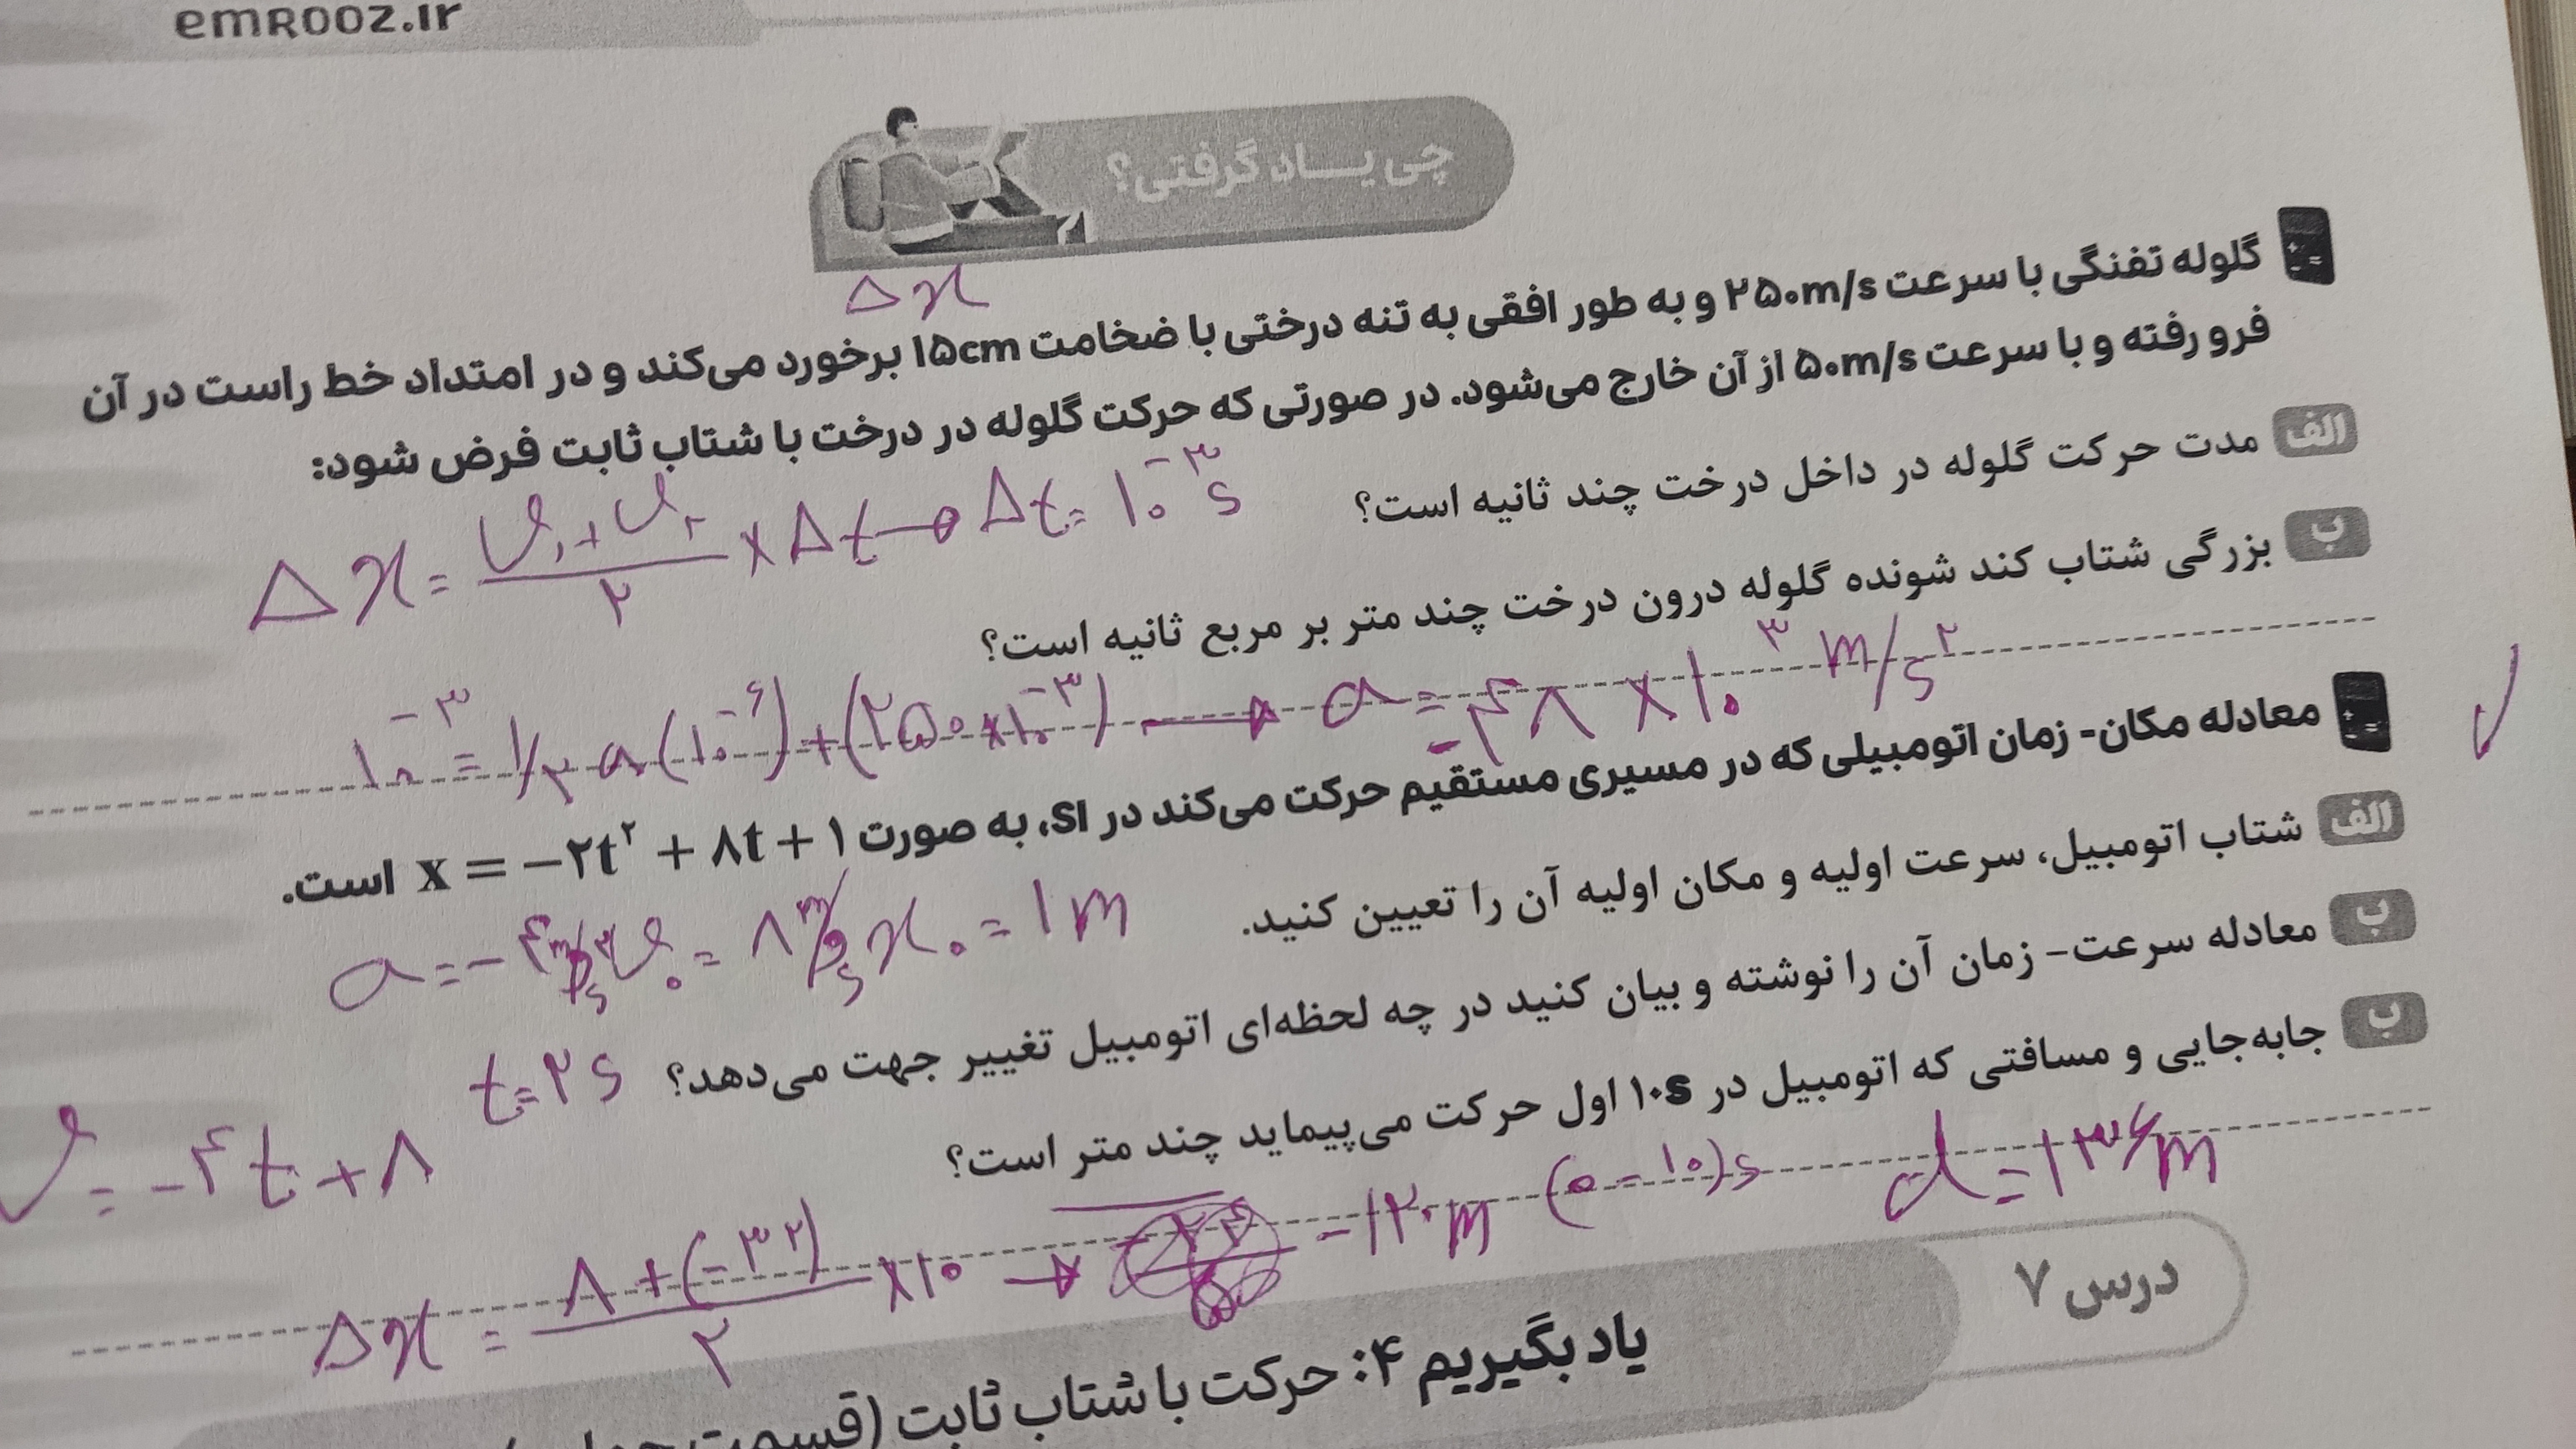 emrooz.ir
چی یاد گرفتی؟
Δx
گلوله تفنگی با سرعت ۲۵۰m/s و به طور افقی به تنه درختی با ضخامت ۱۵cm برخورد می‌کند و در امتداد خط راست در آن
فرو رفته و با سرعت ۵۰m/s از آن خارج می‌شود. در صورتی که حرکت گلوله در درخت با شتاب ثابت فرض شود:
الف مدت حرکت گلوله در داخل درخت چند ثانیه است؟
Δx = (v₁+v₂)/۲ × Δt → Δt = ۱۰⁻³ s
ب بزرگی شتاب کند شونده گلوله درون درخت چند متر بر مربع ثانیه است؟
۱۰⁻³ = ۱/۲ a(۱۰⁻⁶) + (۲۵۰×۱۰⁻³) → a = -۴۹۸ × ۱۰³ m/s²
معادله مکان- زمان اتومبیلی که در مسیری مستقیم حرکت می‌کند در SI، به صورت x = −۲t² + ۸t + ۱ است.
الف شتاب اتومبیل، سرعت اولیه و مکان اولیه آن را تعیین کنید.
a = -۴ m/s² v₀ = ۸ m/s x₀ = ۱ m
ب معادله سرعت- زمان آن را نوشته و بیان کنید در چه لحظه‌ای اتومبیل تغییر جهت می‌دهد؟ t = ۲ s
v = -۴t + ۸
پ جابه‌جایی و مسافتی که اتومبیل در ۱۰s اول حرکت می‌پیماید چند متر است؟
(۰ - ۱۰)s d = ۱۳۶ m
Δx = (۸ + (-۳۲))/۲ × ۱۰ → -۱۲۰ m
درس ۷
یاد بگیریم ۴: حرکت با شتاب ثابت (قسمت